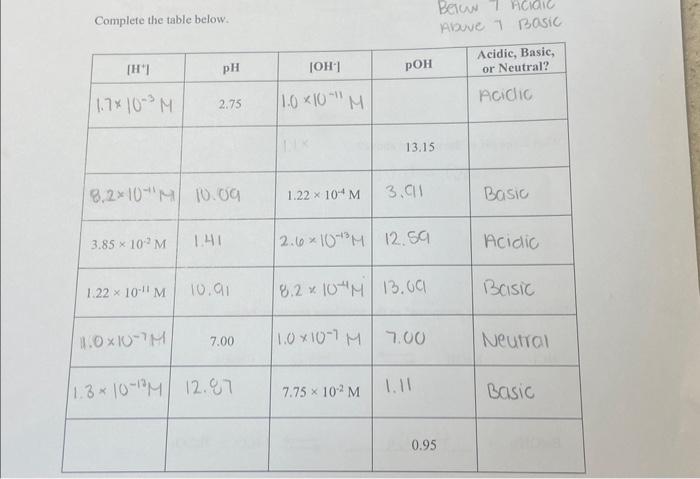 Below 7 Acidic
Complete the table below.
Above 7 Basic
[H⁺] pH [OH⁻] pOH Acidic, Basic, or Neutral?
1.7 × 10⁻³ M 2.75 1.0 × 10⁻¹¹ M Acidic
1.1 × 13.15
8.2 × 10⁻¹¹ M 10.09 1.22 × 10⁻⁴ M 3.91 Basic
3.85 × 10⁻² M 1.41 2.6 × 10⁻¹³ M 12.59 Acidic
1.22 × 10⁻¹¹ M 10.91 8.2 × 10⁻⁴ M 13.09 Basic
1.0 × 10⁻⁷ M 7.00 1.0 × 10⁻⁷ M 7.00 Neutral
1.3 × 10⁻¹³ M 12.87 7.75 × 10⁻² M 1.11 Basic
0.95